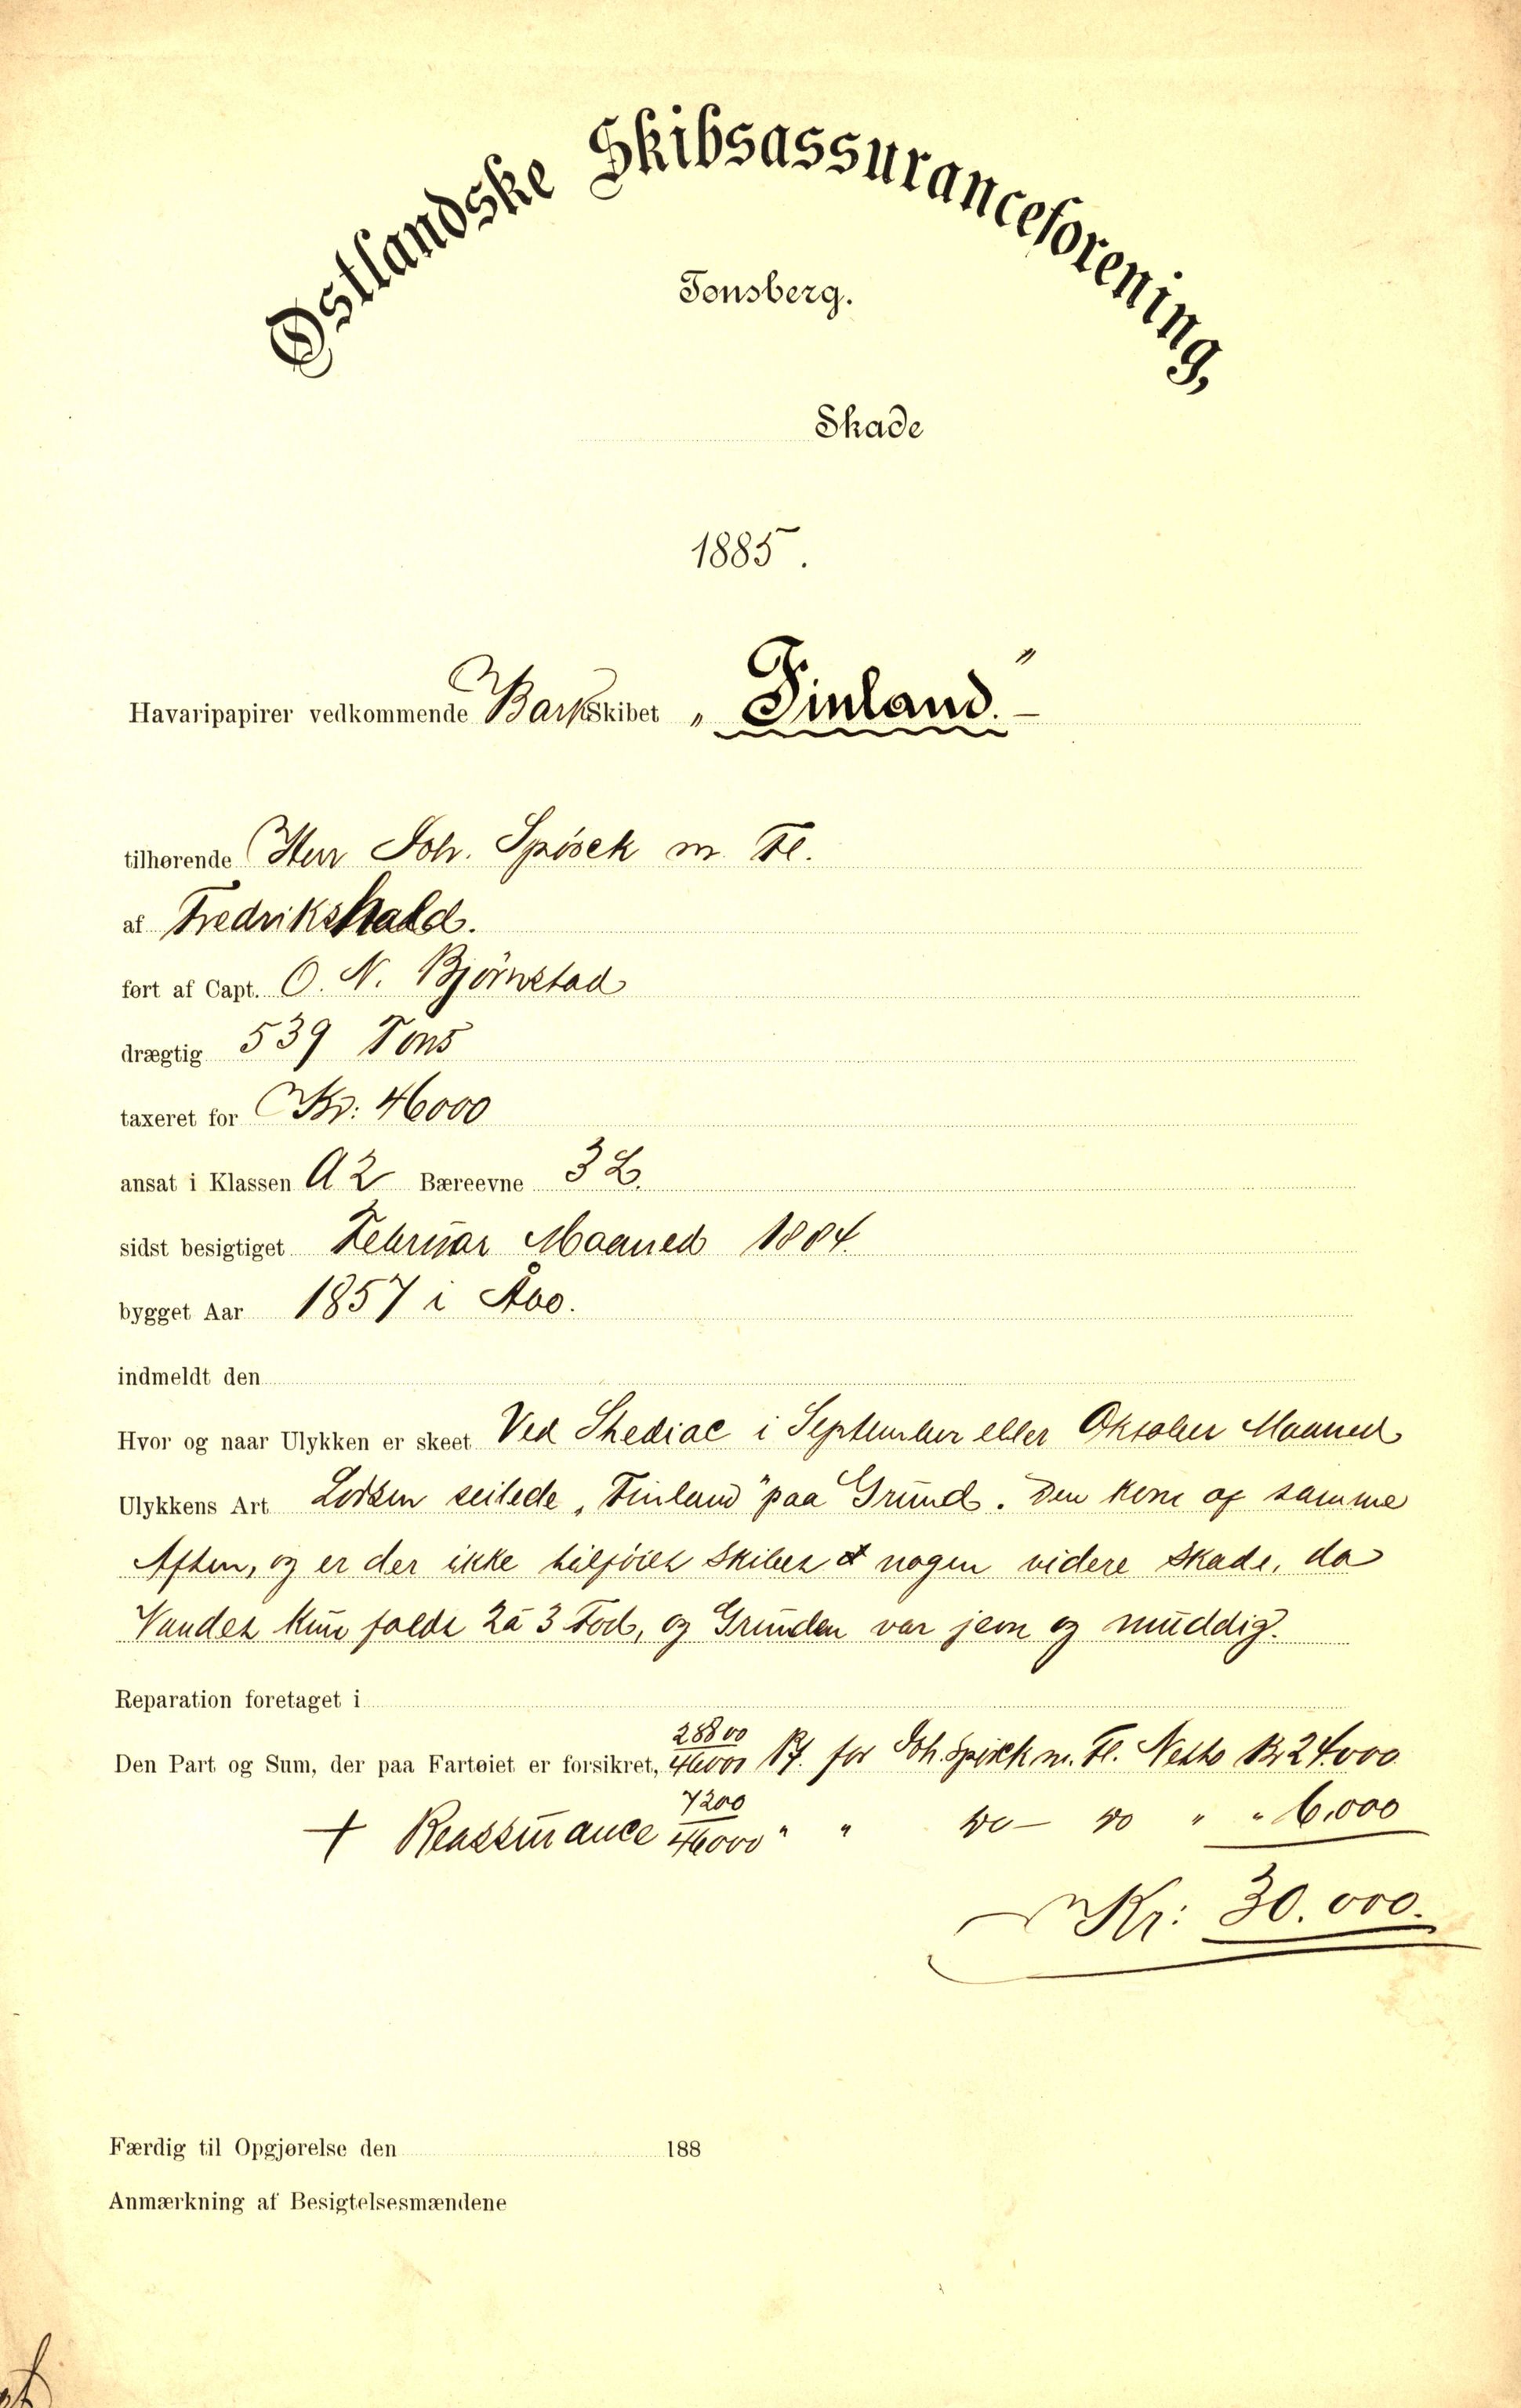 Østlandske Skibsassuranceforening,
Tønsberg.
Skade
1885.
Havaripapirer vedkommende Barkskibet „Finland.“ —
tilhørende Herr Joh. Spörck m. Fl.
af Fredrikshald.
ført af Capt. O. N. Björnstad
drægtig 539 Tons
taxeret for Kr: 46000
ansat i Klassen A2 Bæreevne 3 L.
sidst besigtiget Februar Maaned 1884.
bygget Aar 1857 i Åbo.
indmeldt den
Hvor og naar Ulykken er skeet Ved Shediac i September eller Oktober Maaned
Ulykkens Art Lodsen seilede „Finland“ paa Grund. Den kom af samme
Aften, og er der ikke tilföiet Skibet nogen videre Skade, da
Vandet kun faldt 2 à 3 Fod, og Grunden var jevn og muddig.
Reparation foretaget i
Den Part og Sum, der paa Fartøiet er forsikret, 28800/46000 Pt. for Joh. Spörck m. Fl. Netto Kr 24.000
+ Reassurance 7200/46000 " " do — do " " 6.000
Kr: 30.000.
Færdig til Opgjørelse den 188
Anmærkning af Besigtelsesmændene